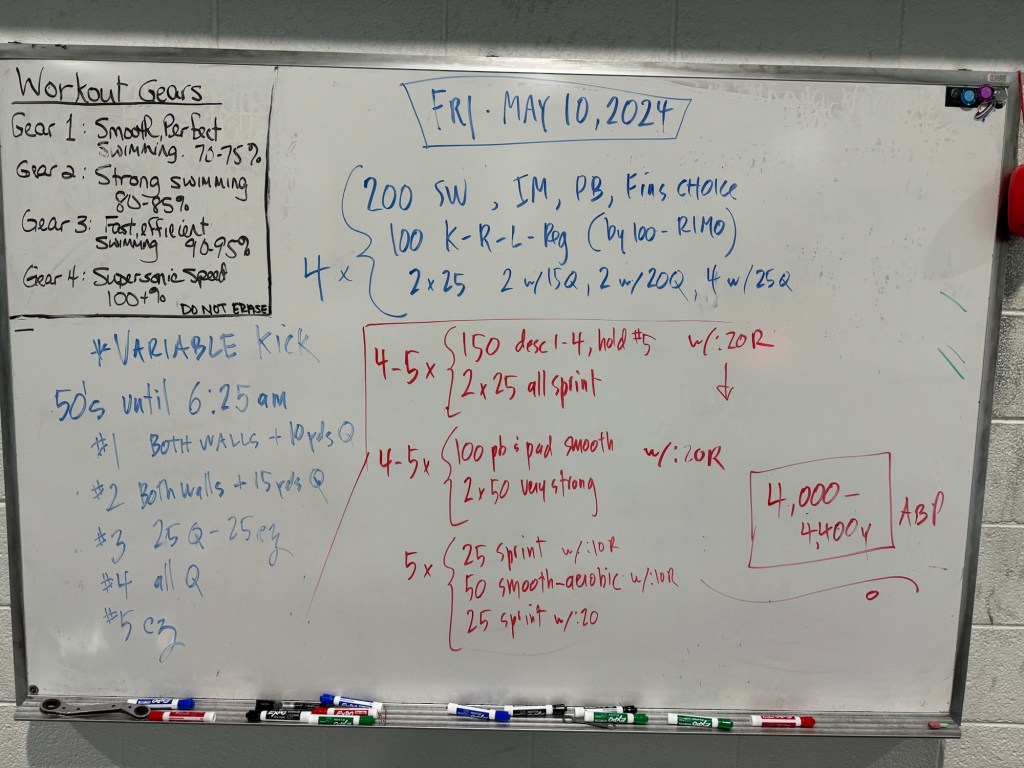 Workout Gears
Gear 1: Smooth, Perfect
Swimming. 70-75%
Gear 2: Strong swimming
80-85%
Gear 3: Fast, efficient
Swimming 90-95%
Gear 4: Supersonic Speed
100+%
DO NOT ERASE
FRI. MAY 10, 2024
4 x
200 SW, IM, PB, Fins CHOICE
100 K-R-L-Reg (by 100-RIMO)
2 x 25 2 w/15Q, 2 w/20Q, 4 w/25Q
*VARIABLE Kick
50's until 6:25 am
#1 BOTH WALLS + 10 yds Q
#2 Both walls + 15 yds Q
#3 25 Q - 25 ez
#4 all Q
#5 ez
4-5 x
150 desc 1-4, hold #5 w/:20R
2 x 25 all sprint
4-5 x
100 pb & pad smooth w/:20R
2 x 50 very strong
5 x
25 sprint w/:10R
50 smooth-aerobic w/:10R
25 sprint w/:20
4,000-
4,400y
ABP
EXPO